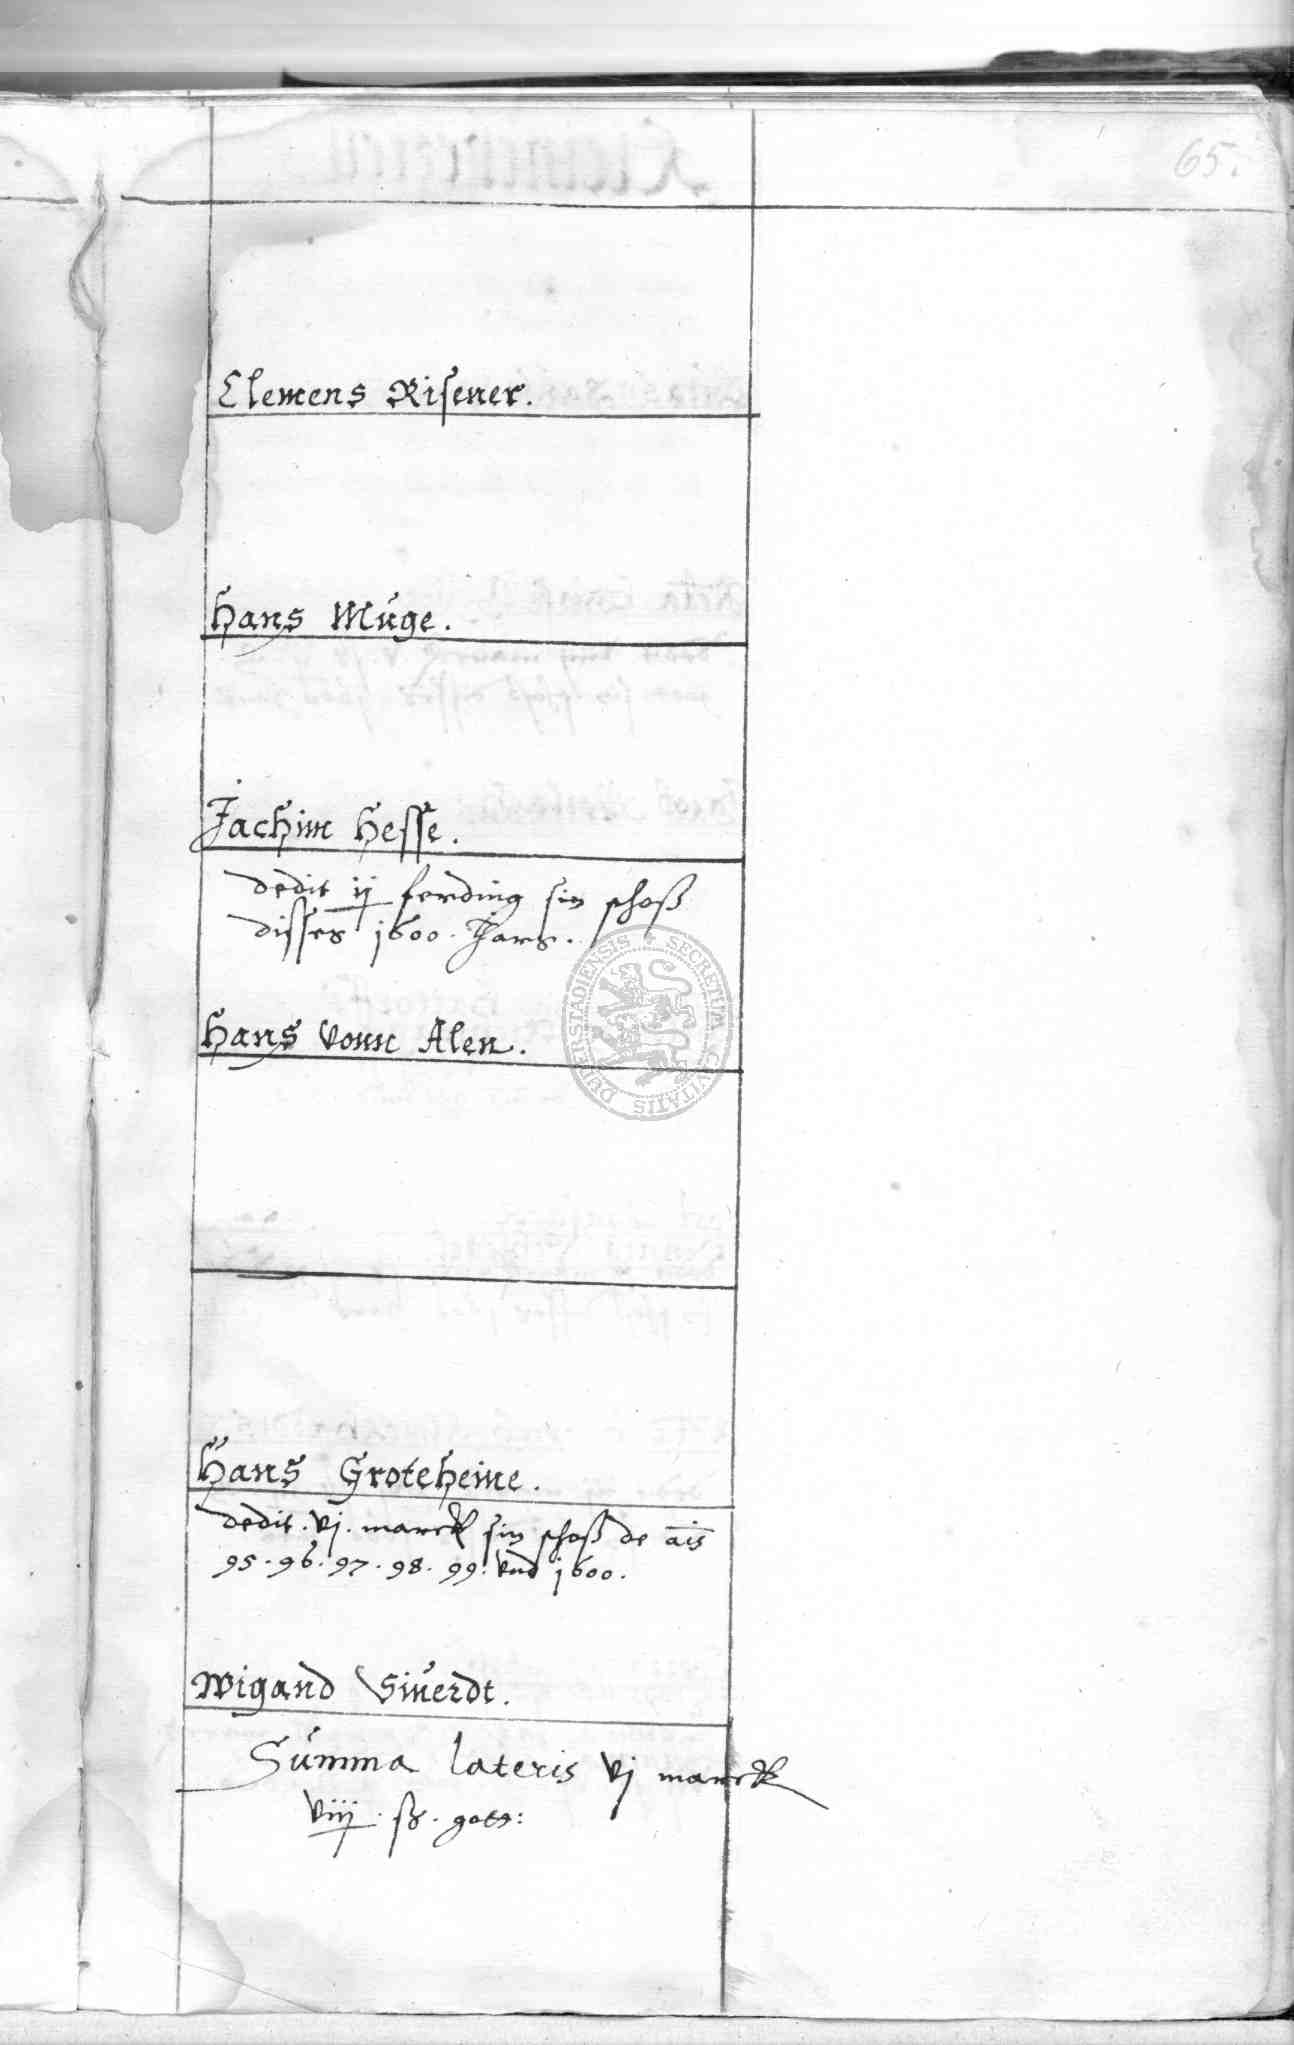 65.
Clemens Risener.
Hans Müge.
Jachim Hesse.
dedit ij ferding sin schoß
disses 1600. Jars.
SECRETUM CIVITATIS DUDERSTADIENSIS
Hans vonn Alen.
Hans Groteheine.
dedit. vj. marck sin schoß de a͞is
95. 96. 97. 98. 99. vnd 1600.
Wigand Siuerdt.
Summa lateris vj marck
viij. ß. gott: